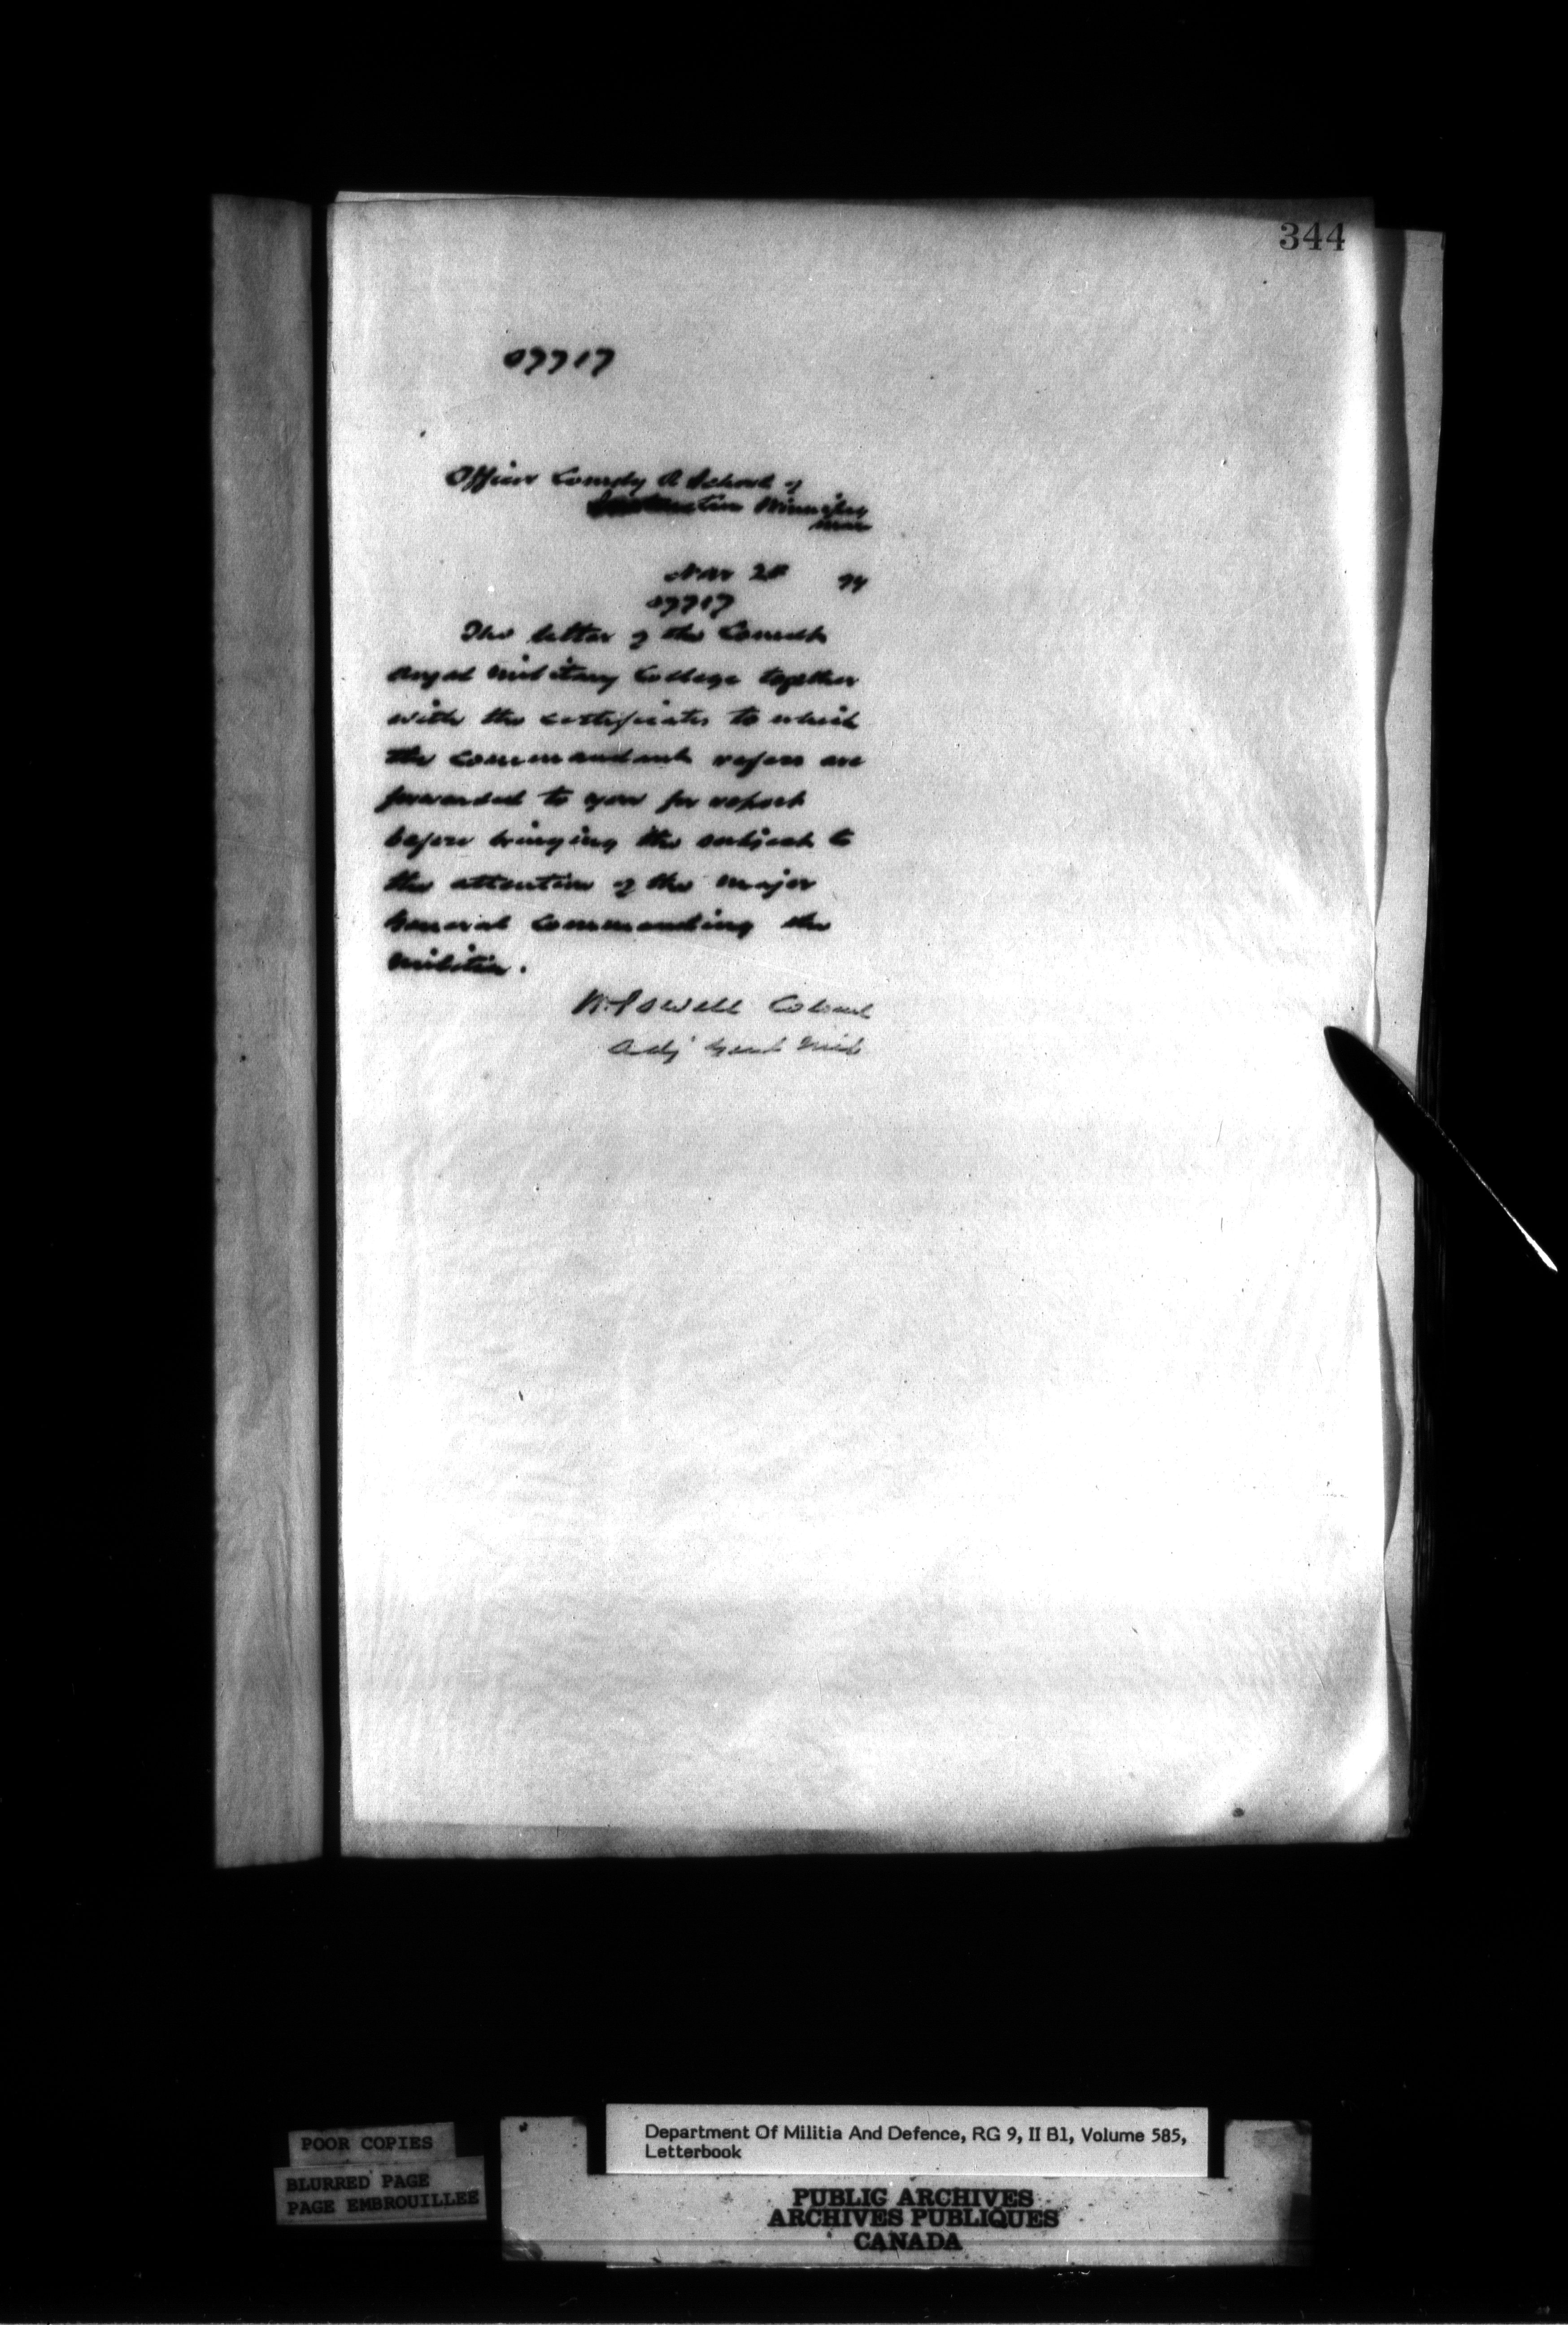 344
07717
Officer Comdg A School of
Instruction Winnipeg
Man
Nov 28
07717
The letter of the Comdt
Royal Military College together
with the certificates to which
the Commandant refers are
forwarded to you for report
before bringing the subject to
the attention of the Major
General Commanding the
Militia.
W. Powell Colonel
Adj Genl Mil
POOR COPIES
BLURRED PAGE
PAGE EMBROUILLEE
Department Of Militia And Defence, RG 9, II B1, Volume 585,
Letterbook
PUBLIC ARCHIVES
ARCHIVES PUBLIQUES
CANADA